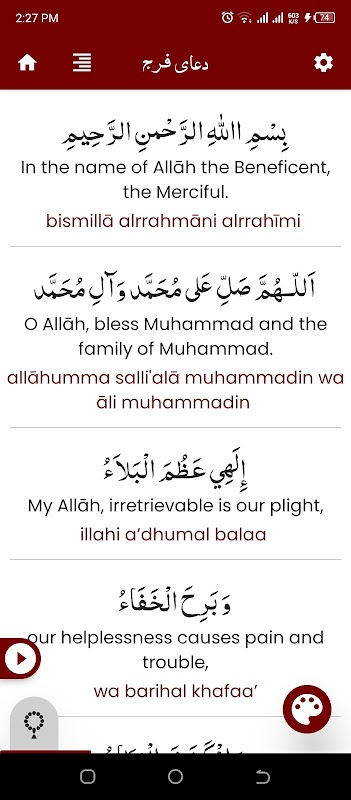 2:27 PM
603 K/S 74
دعای فرج
بِسْمِ اللهِ الرَّحْمنِ الرَّحِيمِ
In the name of Allāh the Beneficent,
the Merciful.
bismillā alrrahmāni alrrahīmi
اَللّـهُمَّ صَلِّ عَلى مُحَمَّد وَآلِ مُحَمَّد
O Allāh, bless Muhammad and the
family of Muhammad.
allāhumma salli'alā muhammadin wa
āli muhammadin
إِلَهِي عَظُمَ الْبَلاَءُ
My Allāh, irretrievable is our plight,
illahi a’dhumal balaa
وَبَرِحَ الْخَفَاءُ
our helplessness causes pain and
trouble,
wa barihal khafaa’